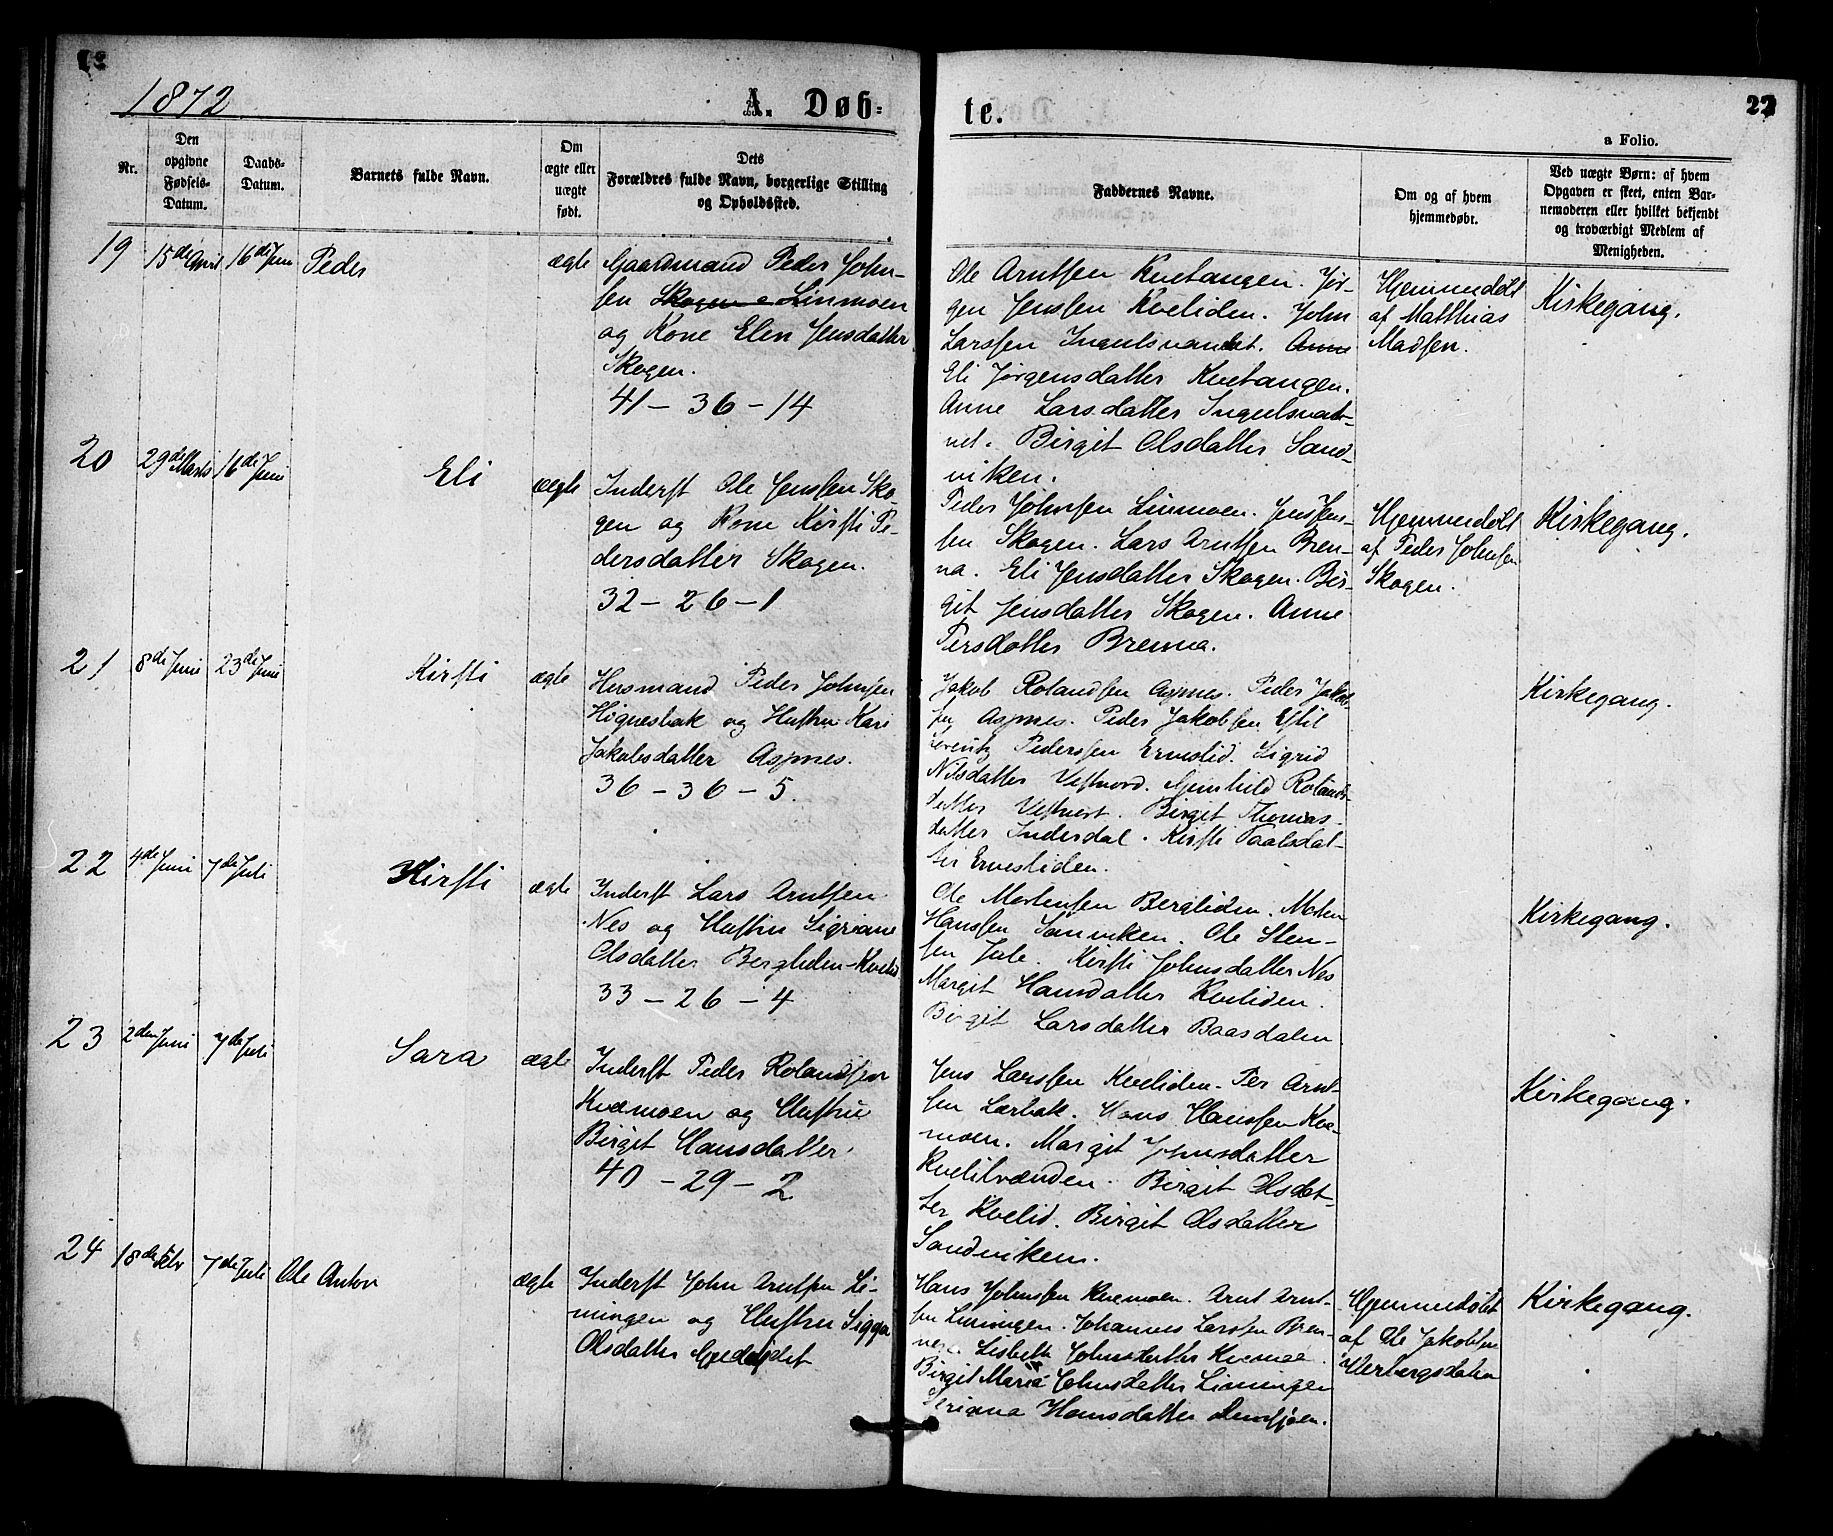 1872
A. Døb-
te.
22
a Folio.
Nr.
Den opgivne Fødsels-Datum.
Daabs-Datum.
Barnets fulde Navn.
Om ægte eller uægte født.
Dets Forældres fulde Navn, borgerlige Stilling og Opholdssted.
Faddernes Navne.
Om og af hvem hjemmedøbt.
Ved uægte Børn: af hvem Opgaven er skeet, enten Barnemoderen eller hvilket bekjendt og troværdigt Medlem af Menigheden.
19 15de April 16de Juni Peder ægte
Gaardmand Peder John-
sen Skogen Linmoen
og Kone Elen Jensdatter
Skogen.
41 - 36 - 14
Ole Arntsen Kvetangen. Jør-
gen Jenssen Kveliden. John
Larssen Ingulsvandet. Anne
Eli Jørgensdatter Kvetangen.
Anne Larsdatter Ingulsvat-
net. Birgit Olsdatter Sand-
viken.
Hjemmedøbt
af Matthias
Madsen.
Kirkegang.
20 29de Marts 16de Juni Eli ægte
Inderst Ole Jenssen Sko-
gen og Kone Kirsti Pe-
dersdatter Skogen.
32 - 26 - 1
Peder Johnsen Linmoen. Jens Jens-
sen Skogen. Lars Arntsen Bren-
na. Eli Jensdatter Skogen. Bir-
git Jensdatter Skogen. Anne
Persdatter Brenna.
Hjemmedøbt
af Peder Johnsen
Skogen.
Kirkegang.
21 8de Juni 23de Juni Kirsti ægte
Husmand Peder Johnsen
og Hustru Kari
Jakobsdatter Aspnes.
36 - 36 - 5.
Jakob Rolandsen Aspnes. Peder Jakob-
sen Aspnes. Peder Jakobsen
Lorentz Pedersen Ernestlid. Sigrid
Nilsdatter Vestnord. Gunhild Rolands-
datter Vestnord. Birgit Thomas-
datter Inderdal. Kirsti Paalsdat-
ter Ernestliden.
Kirkegang.
22 4de Juni 7de Juli Kirsti ægte
Inderst Lars Arntsen
Nes og Hustru Sigriane
Olsdatter Bergliden-Kvelid
33 - 26 - 4
Ole Mortensen Bergliden. Morten
Hanssen Sanviken. Ole Sten-
sen Jule. Kirsti Johnsdatter Nes
Margit Hansdatter Kveliden.
Birgit Larsdatter Baasdalen
Kirkegang.
23 2den Juni 7de Juli Sara ægte
Inderst Peder Rolandsen
Kvæmoen og Hustru
Birgit Hansdatter.
40 - 29 - 2
Jens Larssen Kveliden. Per Arnt-
sen Lærbak. Hans Hanssen Kve-
moen. Margit Johnsdatter
Kvelivænden. Birgit Olsdat-
ter Kvelid. Birgit Olsdatter
Sandviken.
Kirkegang.
24 18de Febr 7de Juli Ole Anton ægte
Inderst John Arntsen Li-
mingen og Hustru Sigga
Olsdatter
Hans Johnsen Kvemoen. Arnt Arnt-
sen Limingen. Johannes Larssen Bren-
na. Lisbeth Johnsdatter Kvemoe.
Birgit Maria Johnsdatter Limingen
Seriana Hansdatter
Hjemmedøbt
af Ole Jakobsen
Kirkegang.